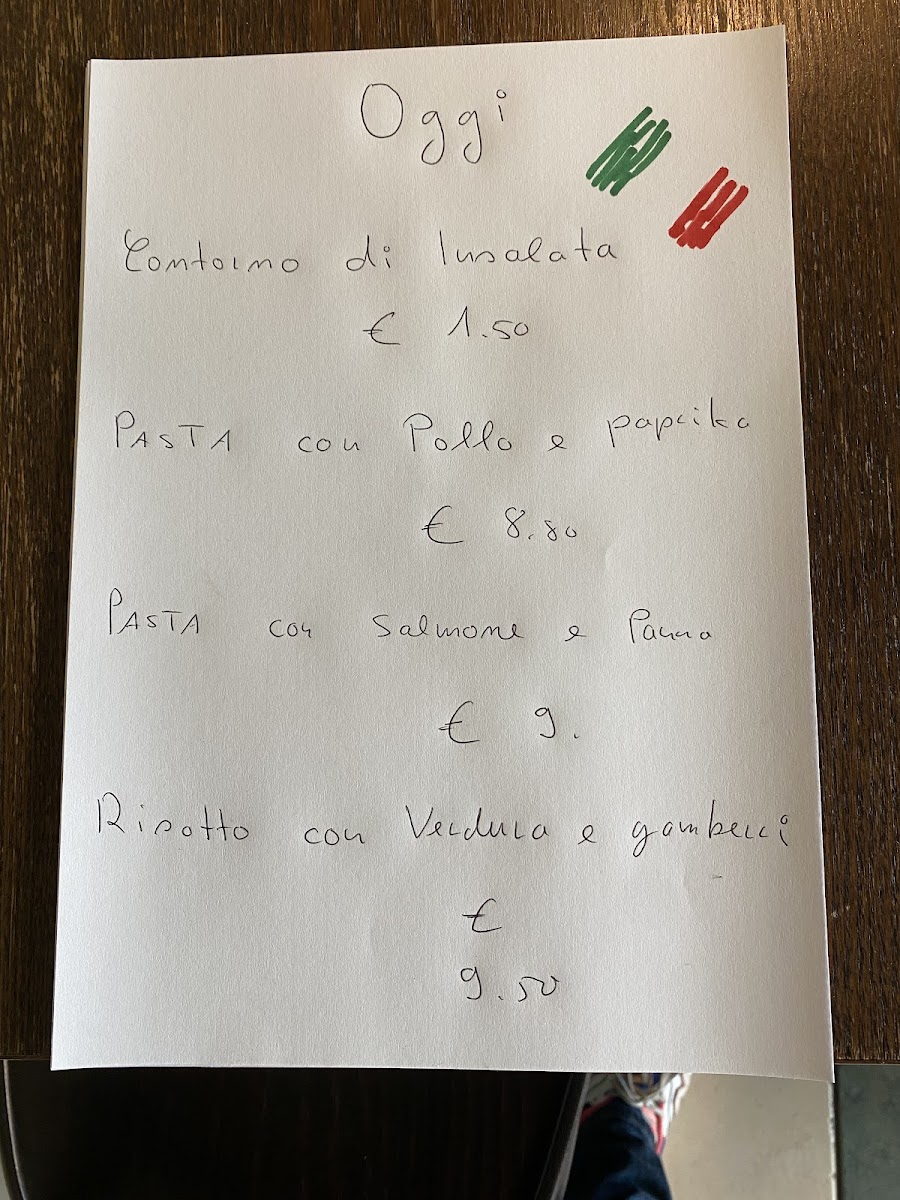 Oggi
Contorno di Insalata
€ 1.50
PASTA con Pollo e paprika
€ 8.80
PASTA con Salmone e Panna
€ 9.
Risotto con Verdura e gamberi
€
9.50